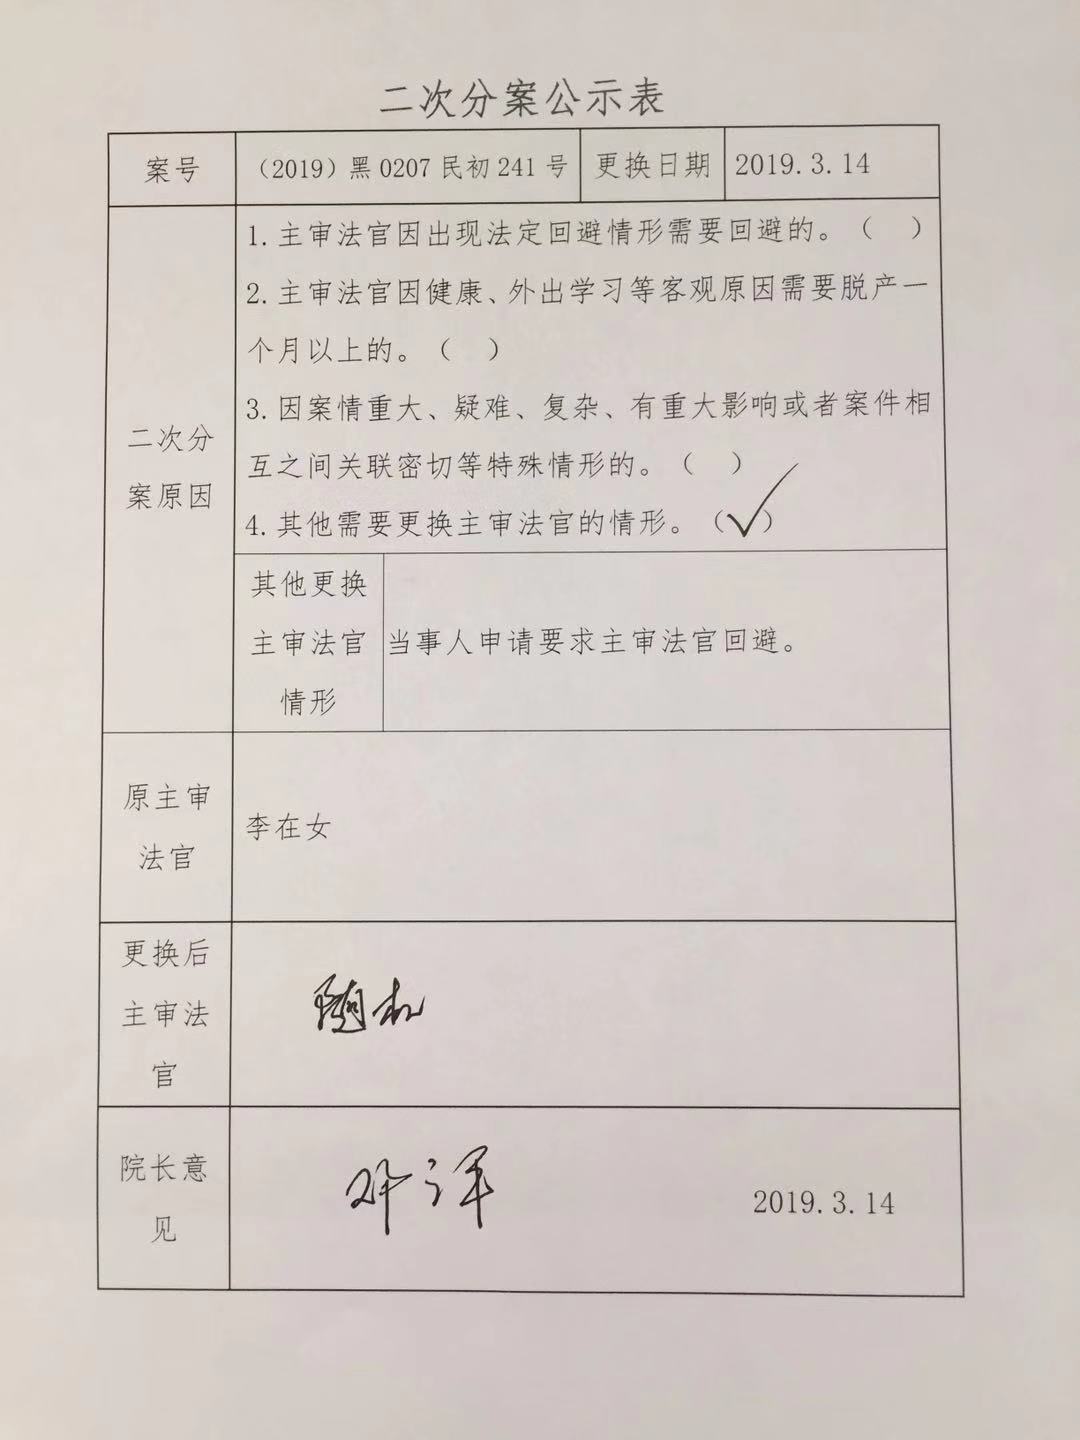 二次分案公示表
案号
（2019）黑 0207 民初 241 号
更换日期
2019.3.14
二次分
案原因
1.主审法官因出现法定回避情形需要回避的。（　）
2.主审法官因健康、外出学习等客观原因需要脱产一
个月以上的。（　）
3.因案情重大、疑难、复杂、有重大影响或者案件相
互之间关联密切等特殊情形的。（　）
4.其他需要更换主审法官的情形。（✓）
其他更换
主审法官
情形
当事人申请要求主审法官回避。
原主审
法官
李在女
更换后
主审法
官
随机
院长意
见
2019.3.14